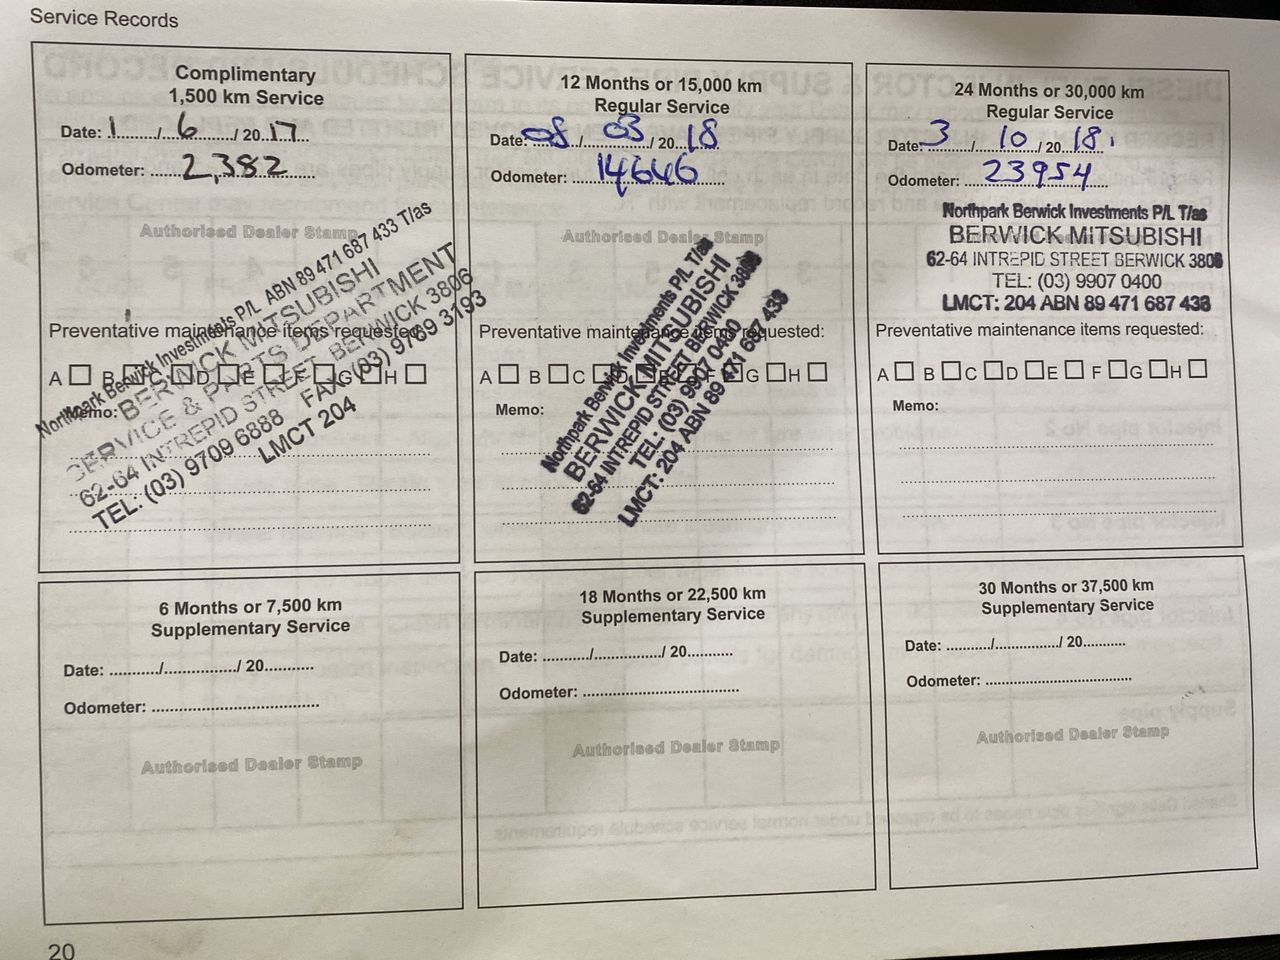 Service Records
Complimentary
1,500 km Service
Date: 1 / 6 / 20 17
Odometer: 2,382
Authorised Dealer Stamp
Northpark Berwick Investments P/L ABN 89 471 687 433 T/as
BERWICK MITSUBISHI
SERVICE & PARTS DEPARTMENT
62-64 INTREPID STREET BERWICK 3806
TEL: (03) 9709 6888 FAX (03) 9769 3193
LMCT 204
Preventative maintenance items requested:
A B C D E F G H
Memo:
12 Months or 15,000 km
Regular Service
Date: 08 / 03 / 20 18
Odometer: 14646
Authorised Dealer Stamp
Northpark Berwick Investments P/L T/as
BERWICK MITSUBISHI
62-64 INTREPID STREET BERWICK 3806
TEL: (03) 9907 0400
LMCT: 204 ABN 89 471 687 433
Preventative maintenance items requested:
A B C D E F G H
Memo:
24 Months or 30,000 km
Regular Service
Date: 3 / 10 / 20 18
Odometer: 23954
Northpark Berwick Investments P/L T/as
BERWICK MITSUBISHI
62-64 INTREPID STREET BERWICK 3806
TEL: (03) 9907 0400
LMCT: 204 ABN 89 471 687 433
Preventative maintenance items requested:
A B C D E F G H
Memo:
6 Months or 7,500 km
Supplementary Service
Date: ........../............../ 20..........
Odometer: ....................................
Authorised Dealer Stamp
18 Months or 22,500 km
Supplementary Service
Date: ........../............../ 20..........
Odometer: ....................................
Authorised Dealer Stamp
30 Months or 37,500 km
Supplementary Service
Date: ........../............../ 20..........
Odometer: ....................................
Authorised Dealer Stamp
20